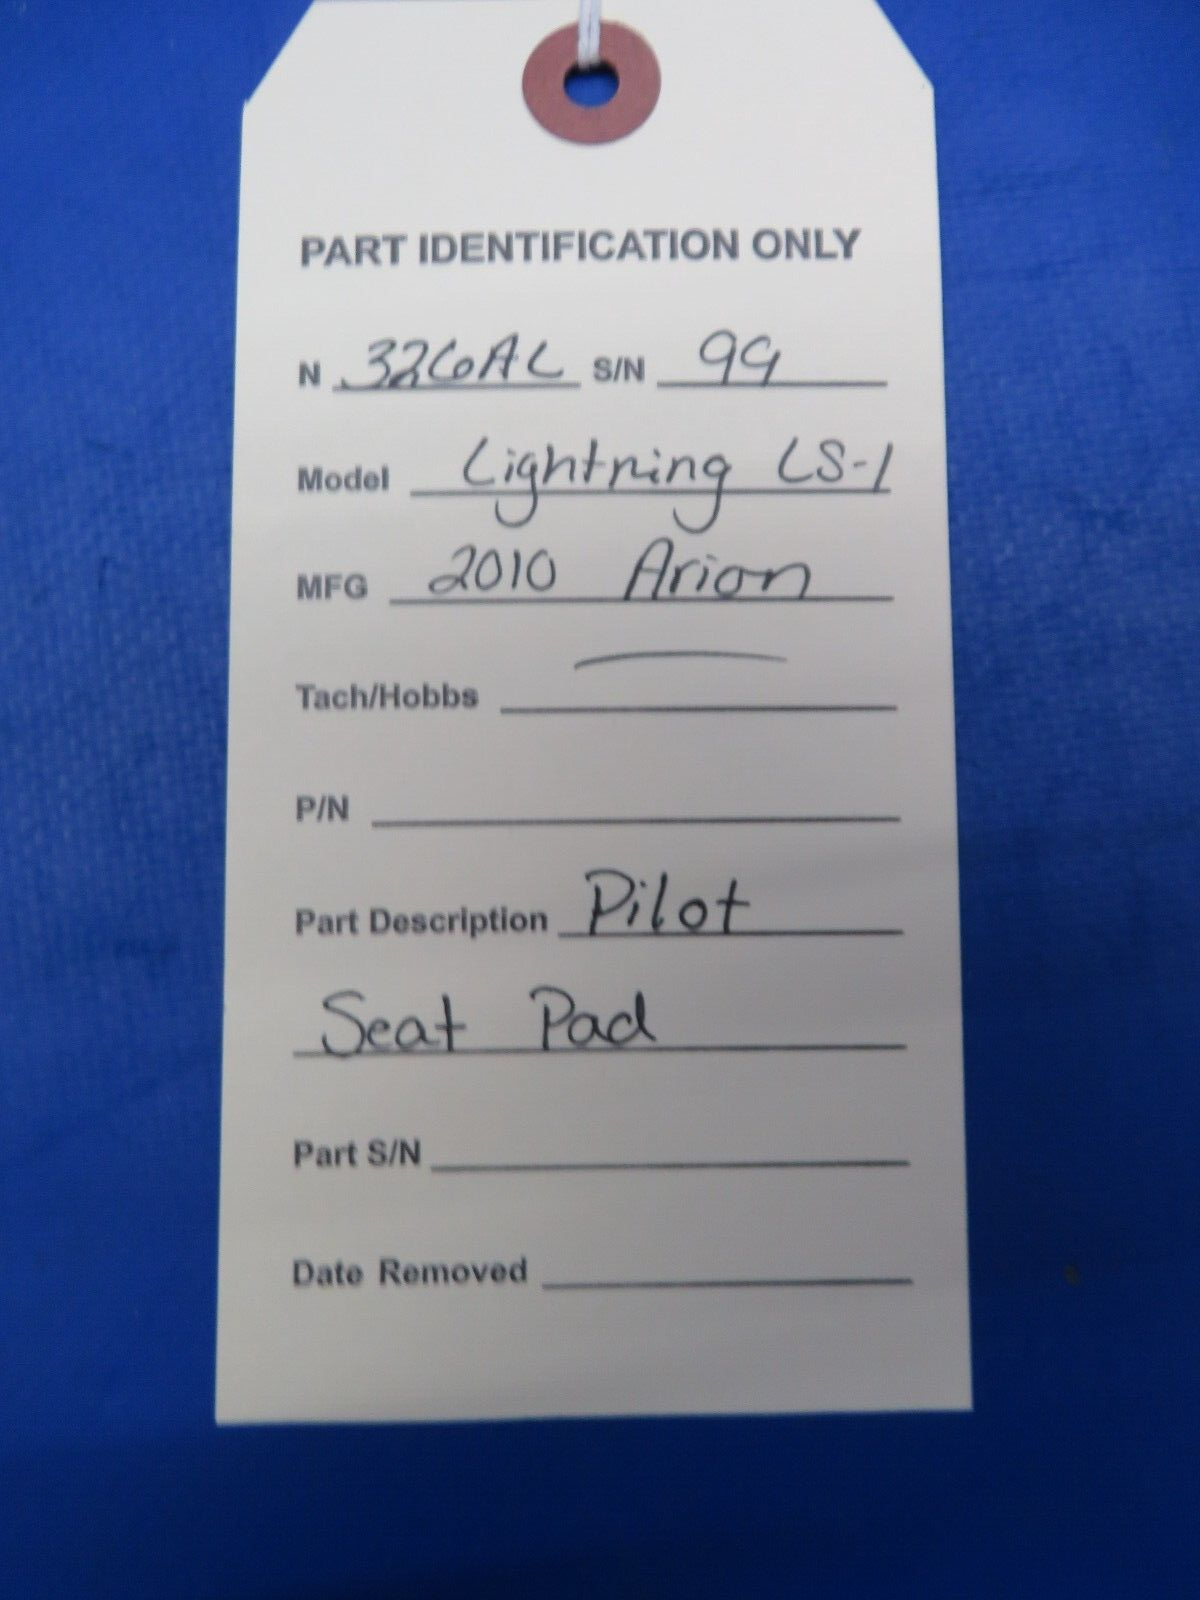 PART IDENTIFICATION ONLY
N 326AL S/N 99
Model Lightning LS-1
MFG 2010 Arion
Tach/Hobbs —
P/N
Part Description Pilot
Seat Pad
Part S/N
Date Removed